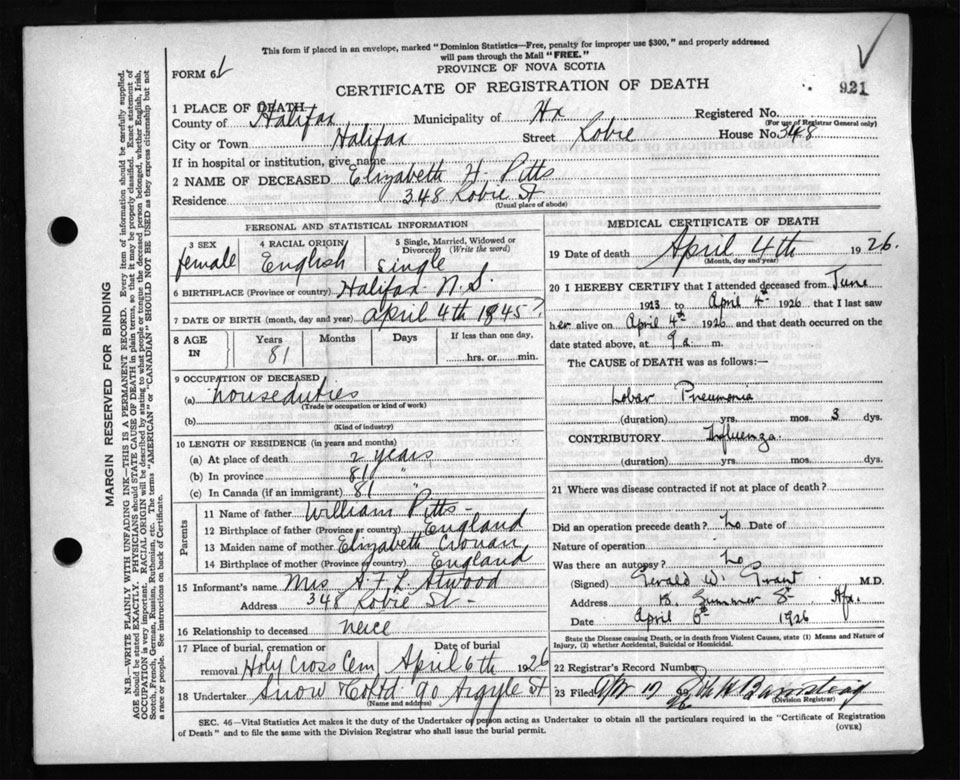 This form if placed in an envelope, marked "Dominion Statistics—Free, penalty for improper use $300," and properly addressed
will pass through the Mail "FREE."
PROVINCE OF NOVA SCOTIA
FORM 6
CERTIFICATE OF REGISTRATION OF DEATH
921
1 PLACE OF DEATH
County of Halifax Municipality of Hx Registered No.
(For use of Registrar General only)
City or Town Halifax Street Robie House No. 348
If in hospital or institution, give name
2 NAME OF DECEASED Elizabeth H. Pitts
Residence 348 Robie St
(Usual place of abode)
PERSONAL AND STATISTICAL INFORMATION
3 SEX female
4 RACIAL ORIGIN English
5 Single, Married, Widowed or Divorced (Write the word) single
6 BIRTHPLACE (Province or country) Halifax N.S.
7 DATE OF BIRTH (month, day and year) April 4th 1845?
8 AGE IN Years 81 Months Days If less than one day, hrs. or min.
9 OCCUPATION OF DECEASED
(a) houseduties
(Trade or occupation or kind of work)
(b)
(Kind of industry)
10 LENGTH OF RESIDENCE (in years and months)
(a) At place of death 2 years
(b) In province 81 "
(c) In Canada (if an immigrant) 81 "
Parents
11 Name of father William Pitts
12 Birthplace of father (Province or country) England
13 Maiden name of mother Elizabeth
14 Birthplace of mother (Province or country) England
15 Informant's name Mrs A F L Atwood
Address 348 Robie St
16 Relationship to deceased neice
17 Place of burial, cremation or removal Holy Cross Cem Date of burial April 6th 1926
18 Undertaker Snow & Co Ltd 90 Argyle St
(Name and address)
MEDICAL CERTIFICATE OF DEATH
19 Date of death April 4th 1926.
(Month, day and year)
20 I HEREBY CERTIFY that I attended deceased from June
1913 to April 4th 1926 that I last saw
her alive on April 4th 1926 and that death occurred on the
date stated above, at 9 a. m.
The CAUSE of DEATH was as follows:—
Lobar Pneumonia
(duration) yrs. mos. 3 dys.
CONTRIBUTORY Influenza
(duration) yrs. mos. dys.
21 Where was disease contracted if not at place of death?
Did an operation precede death? No Date of
Nature of operation
Was there an autopsy? No
(Signed) Gerald W. Grant M.D.
Address Summer St Hfx.
Date April 6th 1926
State the Disease causing Death, or in death from Violent Causes, state (1) Means and Nature of
Injury, (2) whether Accidental, Suicidal or Homicidal.
22 Registrar's Record Number
23 Filed Apr 17
(Division Registrar)
SEC. 46—Vital Statistics Act makes it the duty of the Undertaker or person acting as Undertaker to obtain all the particulars required in the "Certificate of Registration
of Death" and to file the same with the Division Registrar who shall issue the burial permit.
(OVER)
MARGIN RESERVED FOR BINDING
N.B.—WRITE PLAINLY WITH UNFADING INK—THIS IS A PERMANENT RECORD. Every item of information should be carefully supplied.
AGE should be stated EXACTLY. PHYSICIANS should STATE CAUSE OF DEATH in plain terms, so that it may be properly classified. Exact statement of
OCCUPATION is very important. RACIAL ORIGIN will be described by stating to what people or tongue the deceased person belonged, whether English, Irish,
Scotch, French, German, Russian, Ruthenian, etc. The terms "AMERICAN" or "CANADIAN" SHOULD NOT BE USED as they express citizenship but not
a race or people. See instructions on back of Certificate.